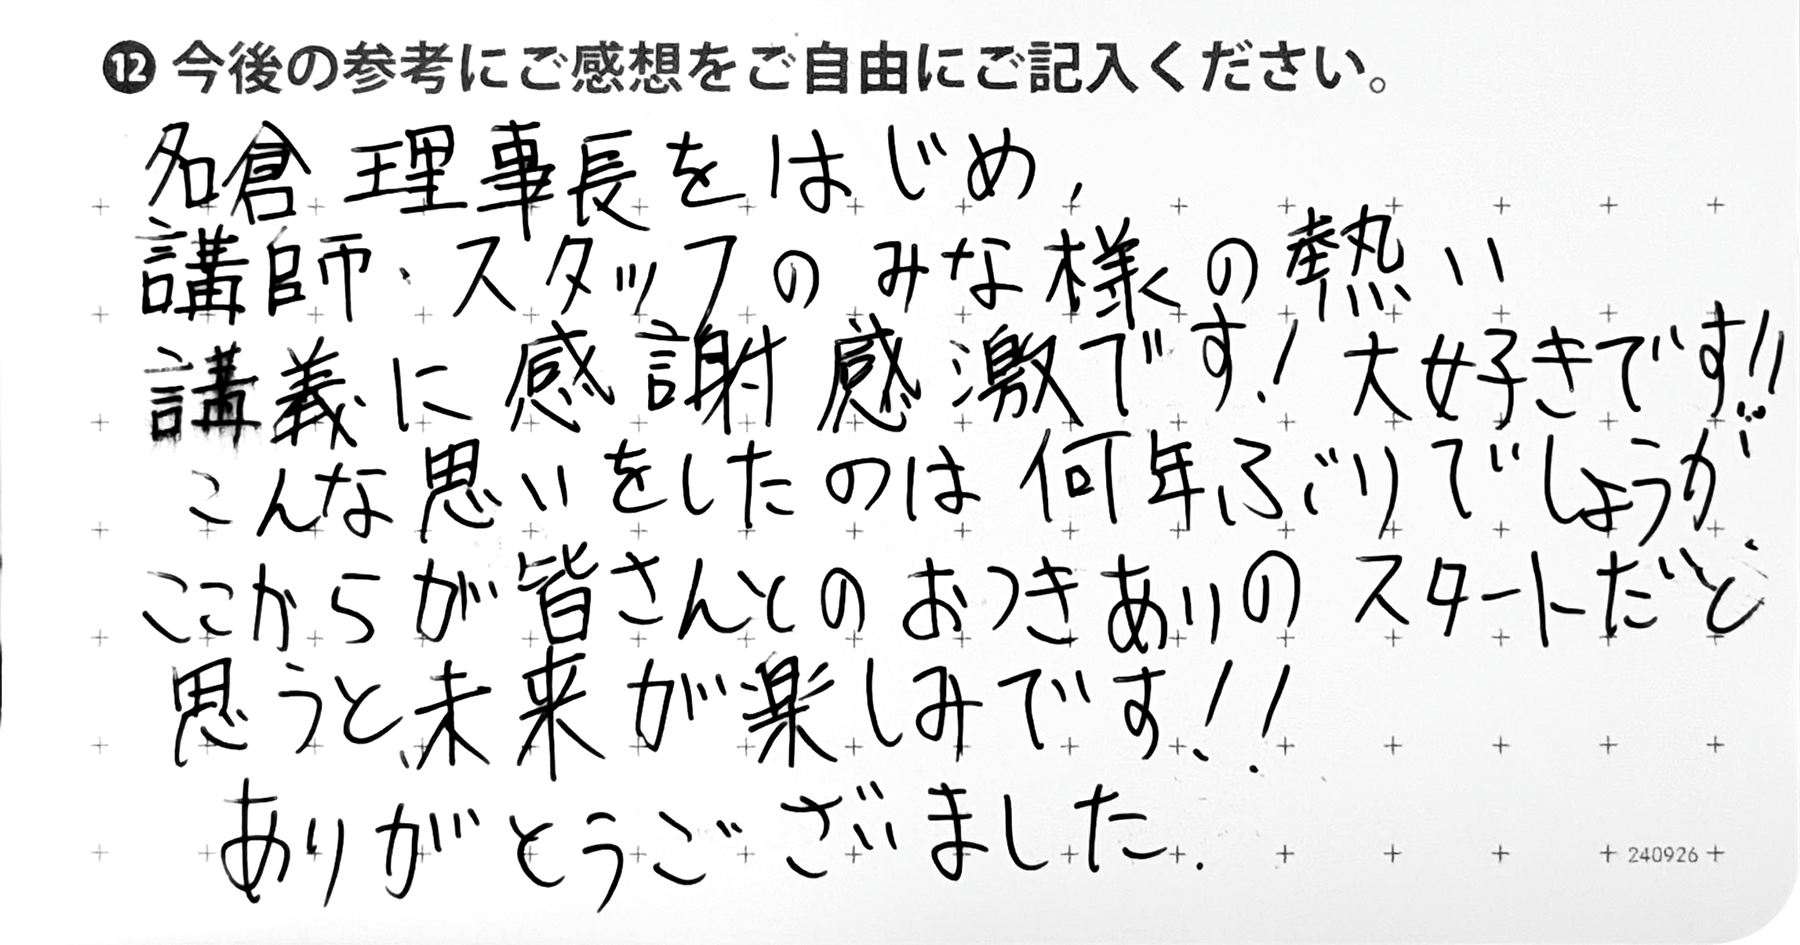 ⓬今後の参考にご感想をご自由にご記入ください。
名倉理事長をはじめ、
講師、スタッフのみな様の熱い
講義に感謝感激です!大好きです!!
こんな思いをしたのは何年ぶりでしょうか。
ここからが皆さんとのおつきありのスタートだと
思うと、未来が楽しみです!!
ありがとうございました.
240926